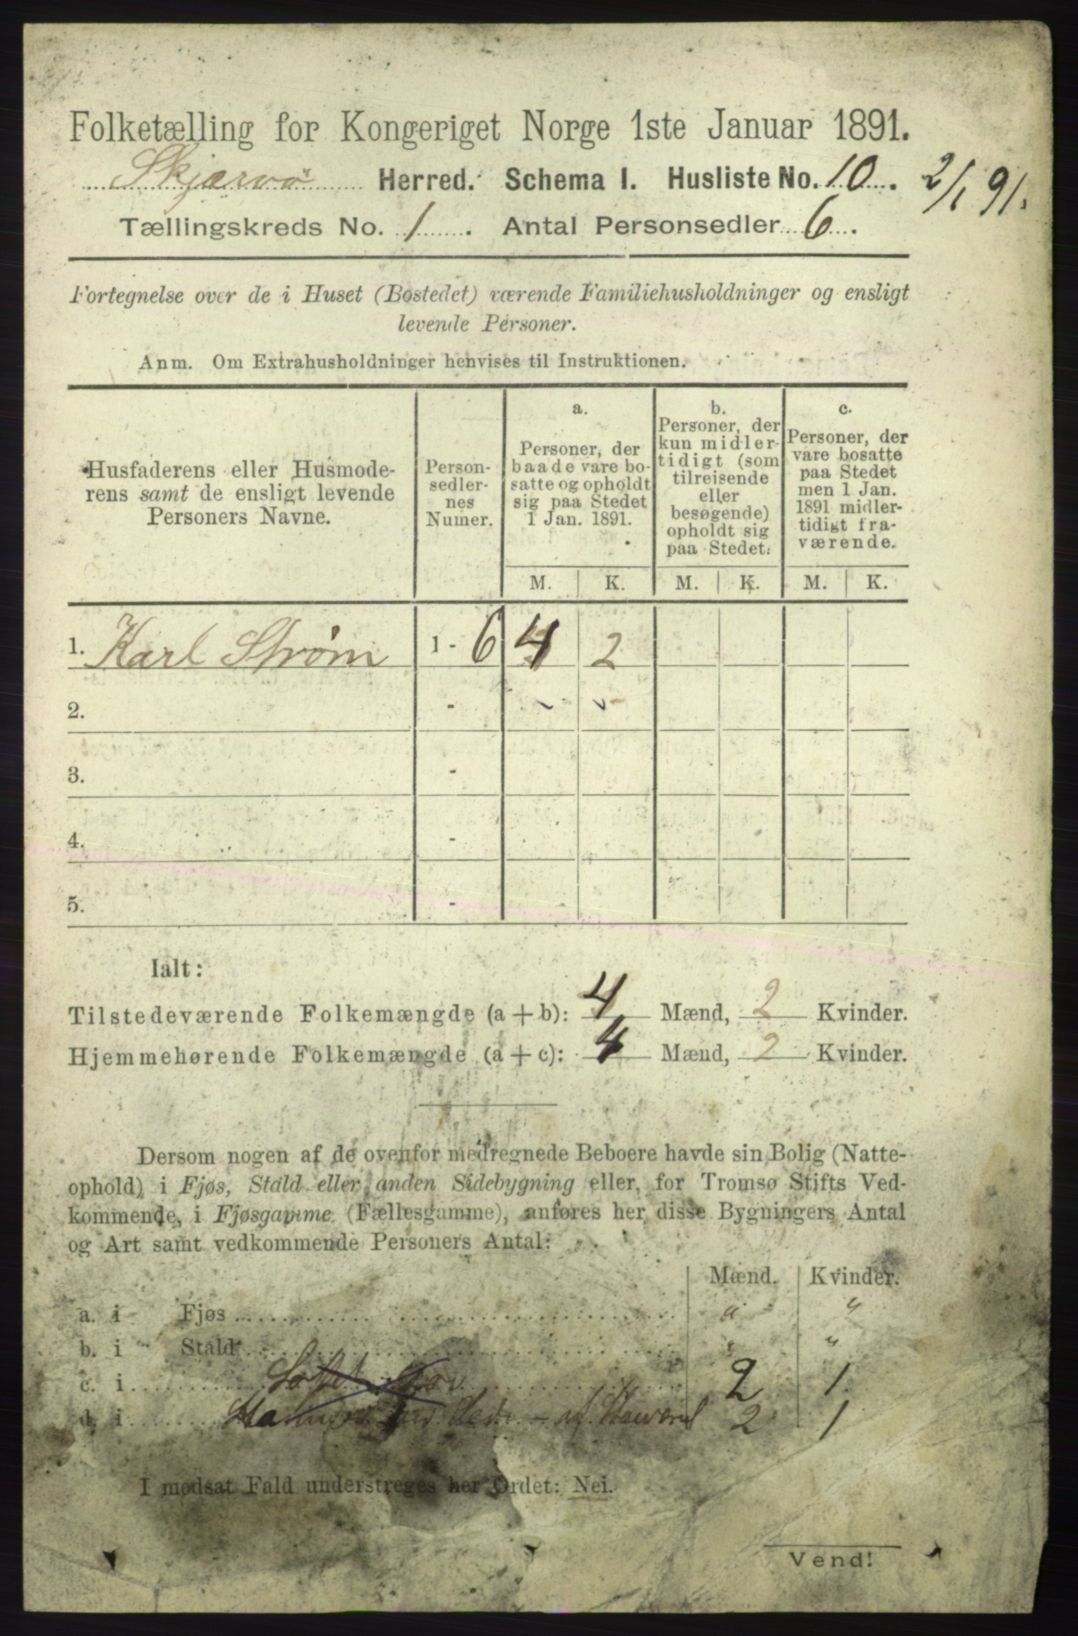 Folketælling for Kongeriget Norge 1ste Januar 1891.
Skjærvø Herred. Schema I. Husliste No. 10. 2/1 91.
Tællingskreds No. 1. Antal Personsedler 6.
Fortegnelse over de i Huset (Bostedet) værende Familiehusholdninger og ensligt
levende Personer.
Anm. Om Extrahusholdninger henvises til Instruktionen.
Husfaderens eller Husmode-
rens samt de ensligt levende
Personers Navne.
Person-
sedler-
nes
Numer.
a.
Personer, der
baade vare bo-
satte og opholdt
sig paa Stedet
1 Jan. 1891.
b.
Personer, der
kun midler-
tidigt (som
tilreisende
eller
besøgende)
opholdt sig
paa Stedet.
c.
Personer, der
vare bosatte
paa Stedet
men 1 Jan.
1891 midler-
tidigt fra-
værende.
M. K. M. K. M. K.
1. Karl Strøm 1 - 6 4 2
2. -
3. -
4. -
5. -
Ialt:
Tilstedeværende Folkemængde (a + b): 4 Mænd, 2 Kvinder.
Hjemmehørende Folkemængde (a + c): 4 Mænd, 2 Kvinder.
Dersom nogen af de ovenfor medregnede Beboere havde sin Bolig (Natte-
ophold) i Fjøs, Stald eller anden Sidebygning eller, for Tromsø Stifts Ved-
kommende, i Fjøsgamme (Fællesgamme), anføres her disse Bygningers Antal
og Art samt vedkommende Personers Antal:
Mænd. Kvinder.
a. i Fjøs " "
b. i Stald " "
c. i 2 1
d. i 2 1
I modsat Fald understreges her Ordet: Nei.
Vend!